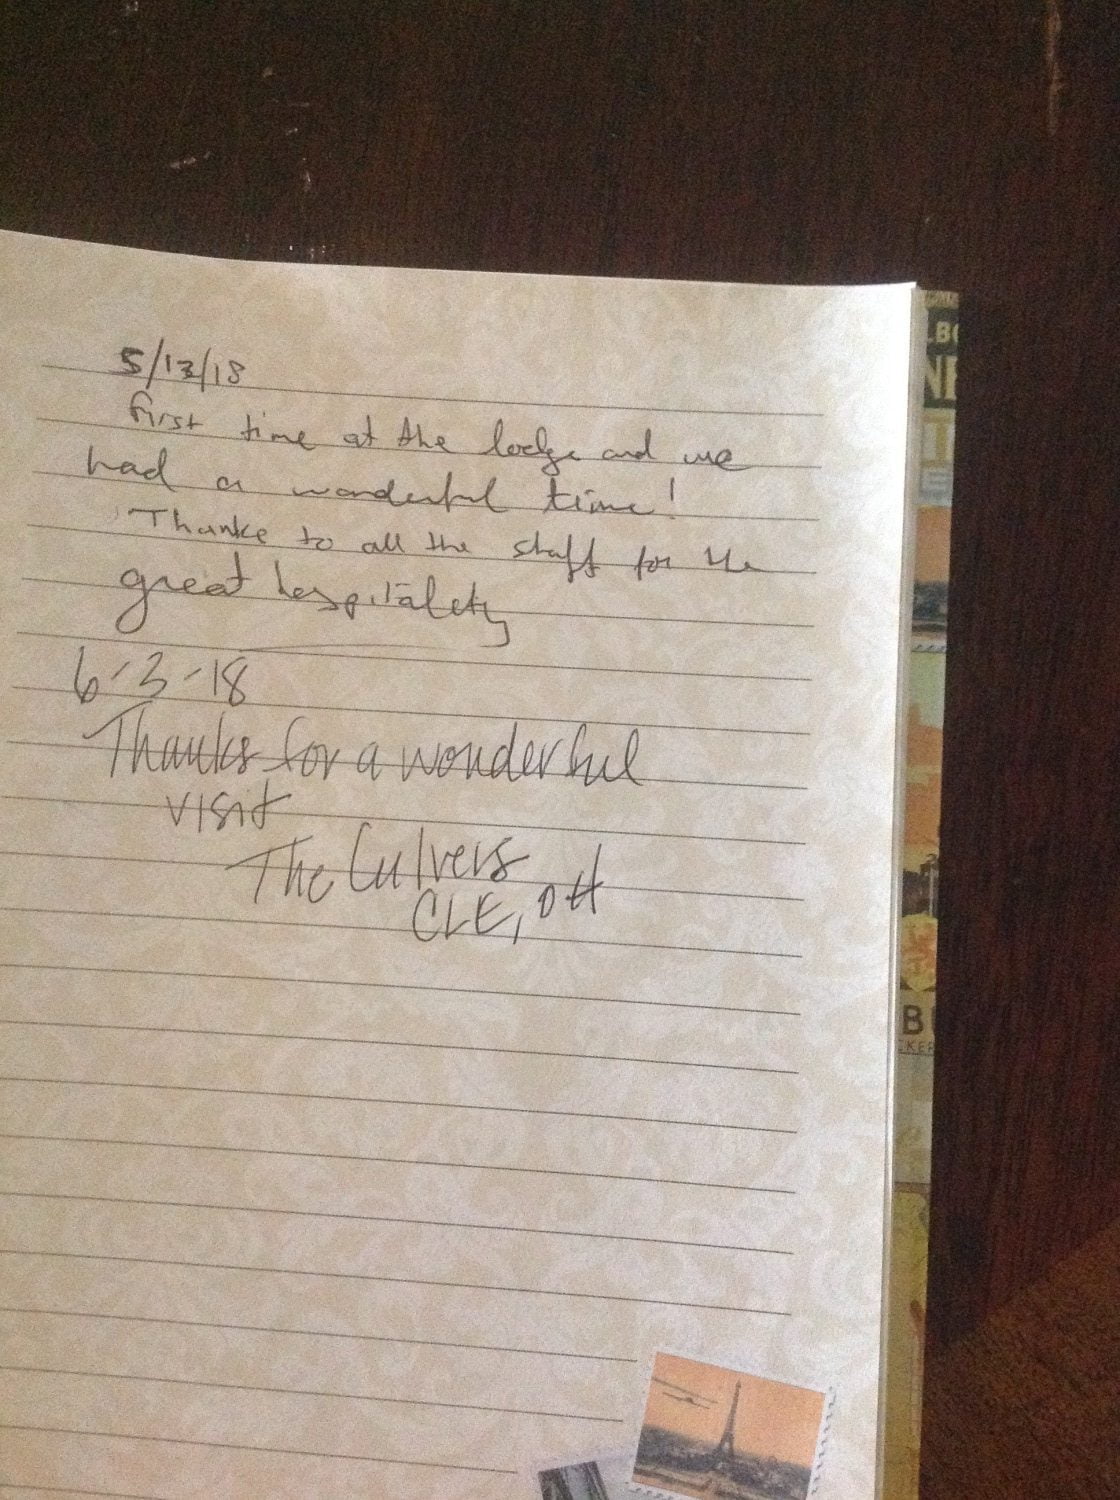 5/13/18
First time at the lodge and we
had a wonderful time!
Thanks to all the staff for the
great hospitality
6-3-18
Thanks for a wonderful
visit
The Culvers
CLE, OH